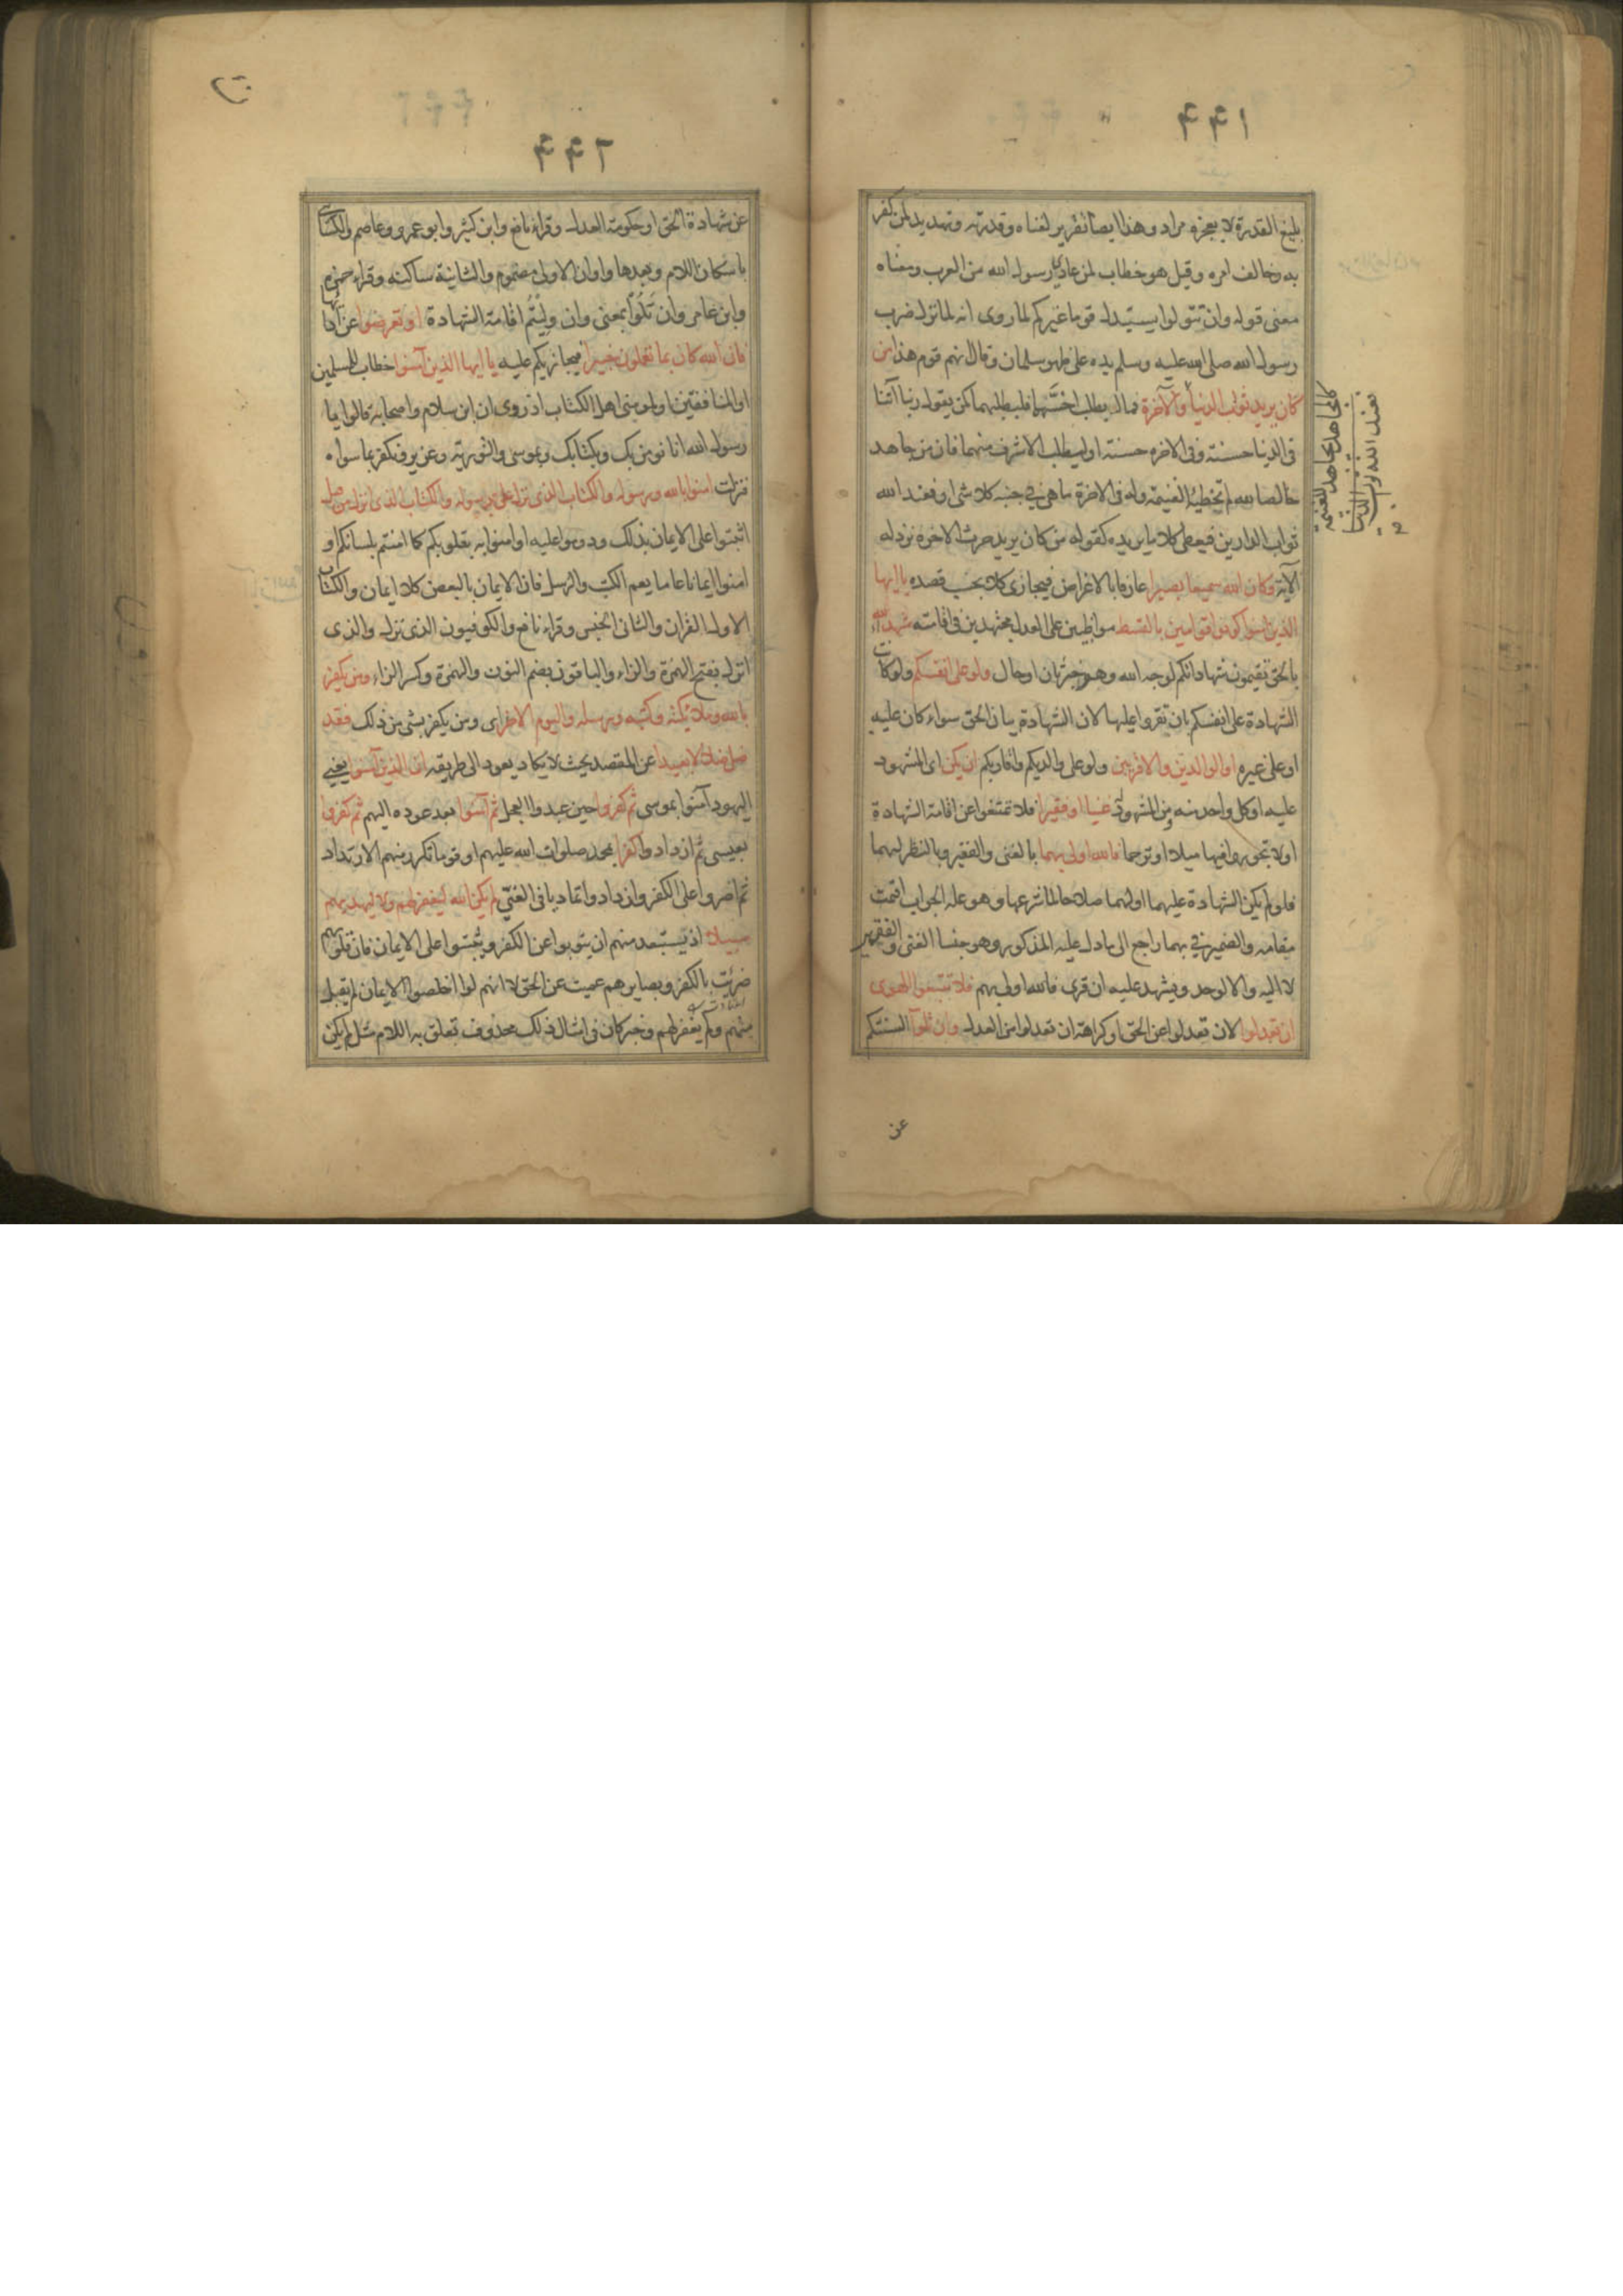 ٤٤١
بليغ القدرة لا يعجزه مراد وهذا ايضا تقرير لغناه وقدرته وتهديد لمن كفر
به وخالف امره وقيل هو خطاب لمن عادى رسول الله من العرب ومعناه
معنى قوله وان تتولوا يستبدل قوما غيركم لما روى انه لما نزل ضرب
رسول الله صلى الله عليه وسلم يده على ظهر سلمان وقال انهم قوم هذا من
كان يريد ثواب الدنيا والآخرة فماله يطلب اخسهما فليطلبهما كمن يقول ربنا آتنا
فى الدنيا حسنة وفى الاخرة حسنة او ليطلب الاشرف منهما فان من جاهد
خالصا لله لم تخطئه الغنيمة وله فى الاخرة ما هى فى جنبه كلا شى او فعند الله
ثواب الدارين فيعطى كلا ما يريده كقوله من كان يريد حرث الاخرة نزد له
الآية وكان الله سميعا بصيرا عارفا بالاغراض فيجازى كلا بحسب قصده يا ايها
الذين امنوا كونوا قوامين بالقسط مواظبين على العدل مجتهدين فى اقامته شهداء لله
بالحق تقيمون شهاداتكم لوجه الله وهو خبر ثان او حال ولو على انفسكم ولو كانت
الشهادة على انفسكم بان تقروا عليها لان الشهادة بيان الحق سواء كان عليه
او على غيره او الوالدين والاقربين ولو على والديكم واقاربكم ان يكن اى المشهود
عليه او كل واحد منه ومن المشهود له غنيا او فقيرا فلا تمتنعوا عن اقامة الشهادة
او لا تجوروا فيها ميلا او ترحما فالله اولى بهما بالغنى والفقير وبالنظر لهما
فلو لم يكن الشهادة عليهما او لهما صلاحا لما شرعها وهو علة الجواب اقيمت
مقامه والضمير فى بهما راجع الى ما دل عليه المذكور وهو جنسا الغنى والفقير
لا اليه والا لوحد ويشهد عليه ان قرى فالله اولى بهم فلا تتبعوا الهوى
ان تعدلوا لان تعدلوا عن الحق او كراهة ان تعدلوا من العدل وان تلوا السنتكم
عن
كالمجاهد يجاهد للغنيمة
فعند الله ثواب الدنيا
٤٤٢
عن شهادة الحق او حكومة العدل وقراء نافع وابن كثير وابو عمرو وعاصم والكسائى
باسكان اللام وبعدها واوان الاولى مضموم والثانية ساكنة وقراء حمزه
وابن عامر وان تلوا بمعنى وان وليتم اقامة الشهادة او تعرضوا عن ادائها
فان الله كان بما تعملون خبيرا فيجازيكم عليه يا ايها الذين آمنوا خطاب للمسلمين
او المنافقين او لمومنى اهل الكتاب اذ روى ان ابن سلام واصحابه قالوا يا
رسول الله انا نومن بك وبكتابك وبموسى والتورية وعزير ونكفر بما سواه
فنزلت امنوا بالله ورسوله والكتاب الذى نزل على رسوله والكتاب الذى انزل من قبل
اثبتوا على الايمان بذلك ودوموا عليه او امنوا به بقلوبكم كما امنتم بلسانكم او
امنوا ايمانا عاما يعم الكتب والرسل فان الايمان بالبعض كلا ايمان والكتاب
الاول القران والثانى الجنس وقراء نافع والكوفيون الذى نزل والذى
انزل بفتح الهمزة والزاء والباقون بضم النون والهمزة وكسر الزاء ومن يكفر
بالله وملائكته وكتبه ورسله واليوم الاخر اى ومن يكفر بشى من ذلك فقد
ضل ضلالا بعيدا عن المقصد بحيث لا يكاد يعود الى طريقه ان الذين آمنوا يعنى
اليهود آمنوا بموسى ثم كفروا حين عبدوا العجل ثم آمنوا بعد عوده اليهم ثم كفروا
بعيسى ثم ازدادوا كفرا بمحمد صلوات الله عليهم او قوما تكرر منهم الارتداد
ثم اصروا على الكفر وازدادوا تماديا فى الغى لم يكن الله ليغفر لهم ولا ليهديهم
سبيلا اذ يستبعد منهم ان يتوبوا عن الكفر ويثبتوا على الايمان فان قلوبهم
ضربت بالكفر وبصايرهم عميت عن الحق لا انهم لو اخلصوا الايمان لم يقبل
منهم ولم يغفر لهم وخبر كان فى امثال ذلك محذوف تعلق به اللام مثل لم يكن